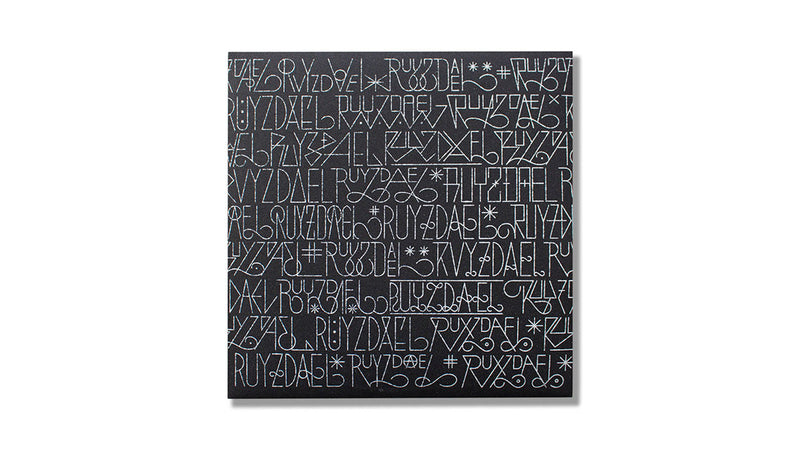 RUYZDAEL RUYZDAEL * RUYZDAEL ** # RUYZDAEL
RUYZDAEL RUYZDAEL - RUYZDAEL × R
RUYZDAEL RUYZDAEL RUYZDAEL
RUYZDAEL RUYZDAEL * RUYZDAEL RU
DAEL RUYZDAEL # RUYZDAEL * RUYZ
DAEL # RUYZDAEL ** RUYZDAEL RU
DAEL RUYZDAEL RUYZDAEL RUYZ
RUYZDAEL RUYZDAEL *
RUYZDAEL * RUYZDAEL # RUYZDAEL *